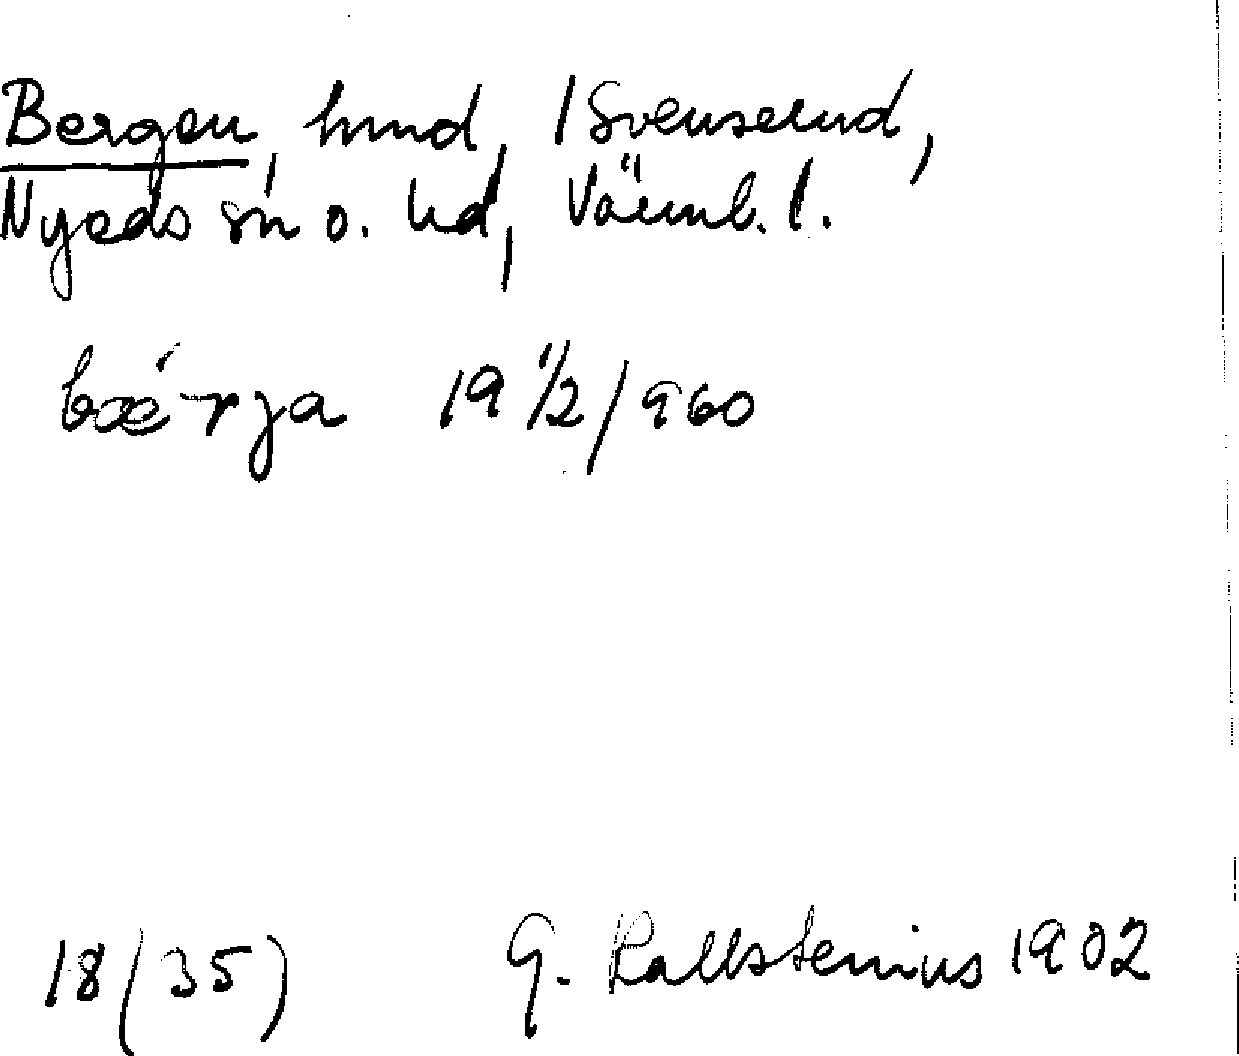 Bergen, hmd, 1 Svenserud,
Nyeds sn o. hd, Värml. l.
bæ´rja 19 1/2/960
18(35) G. Kallstenius 1902